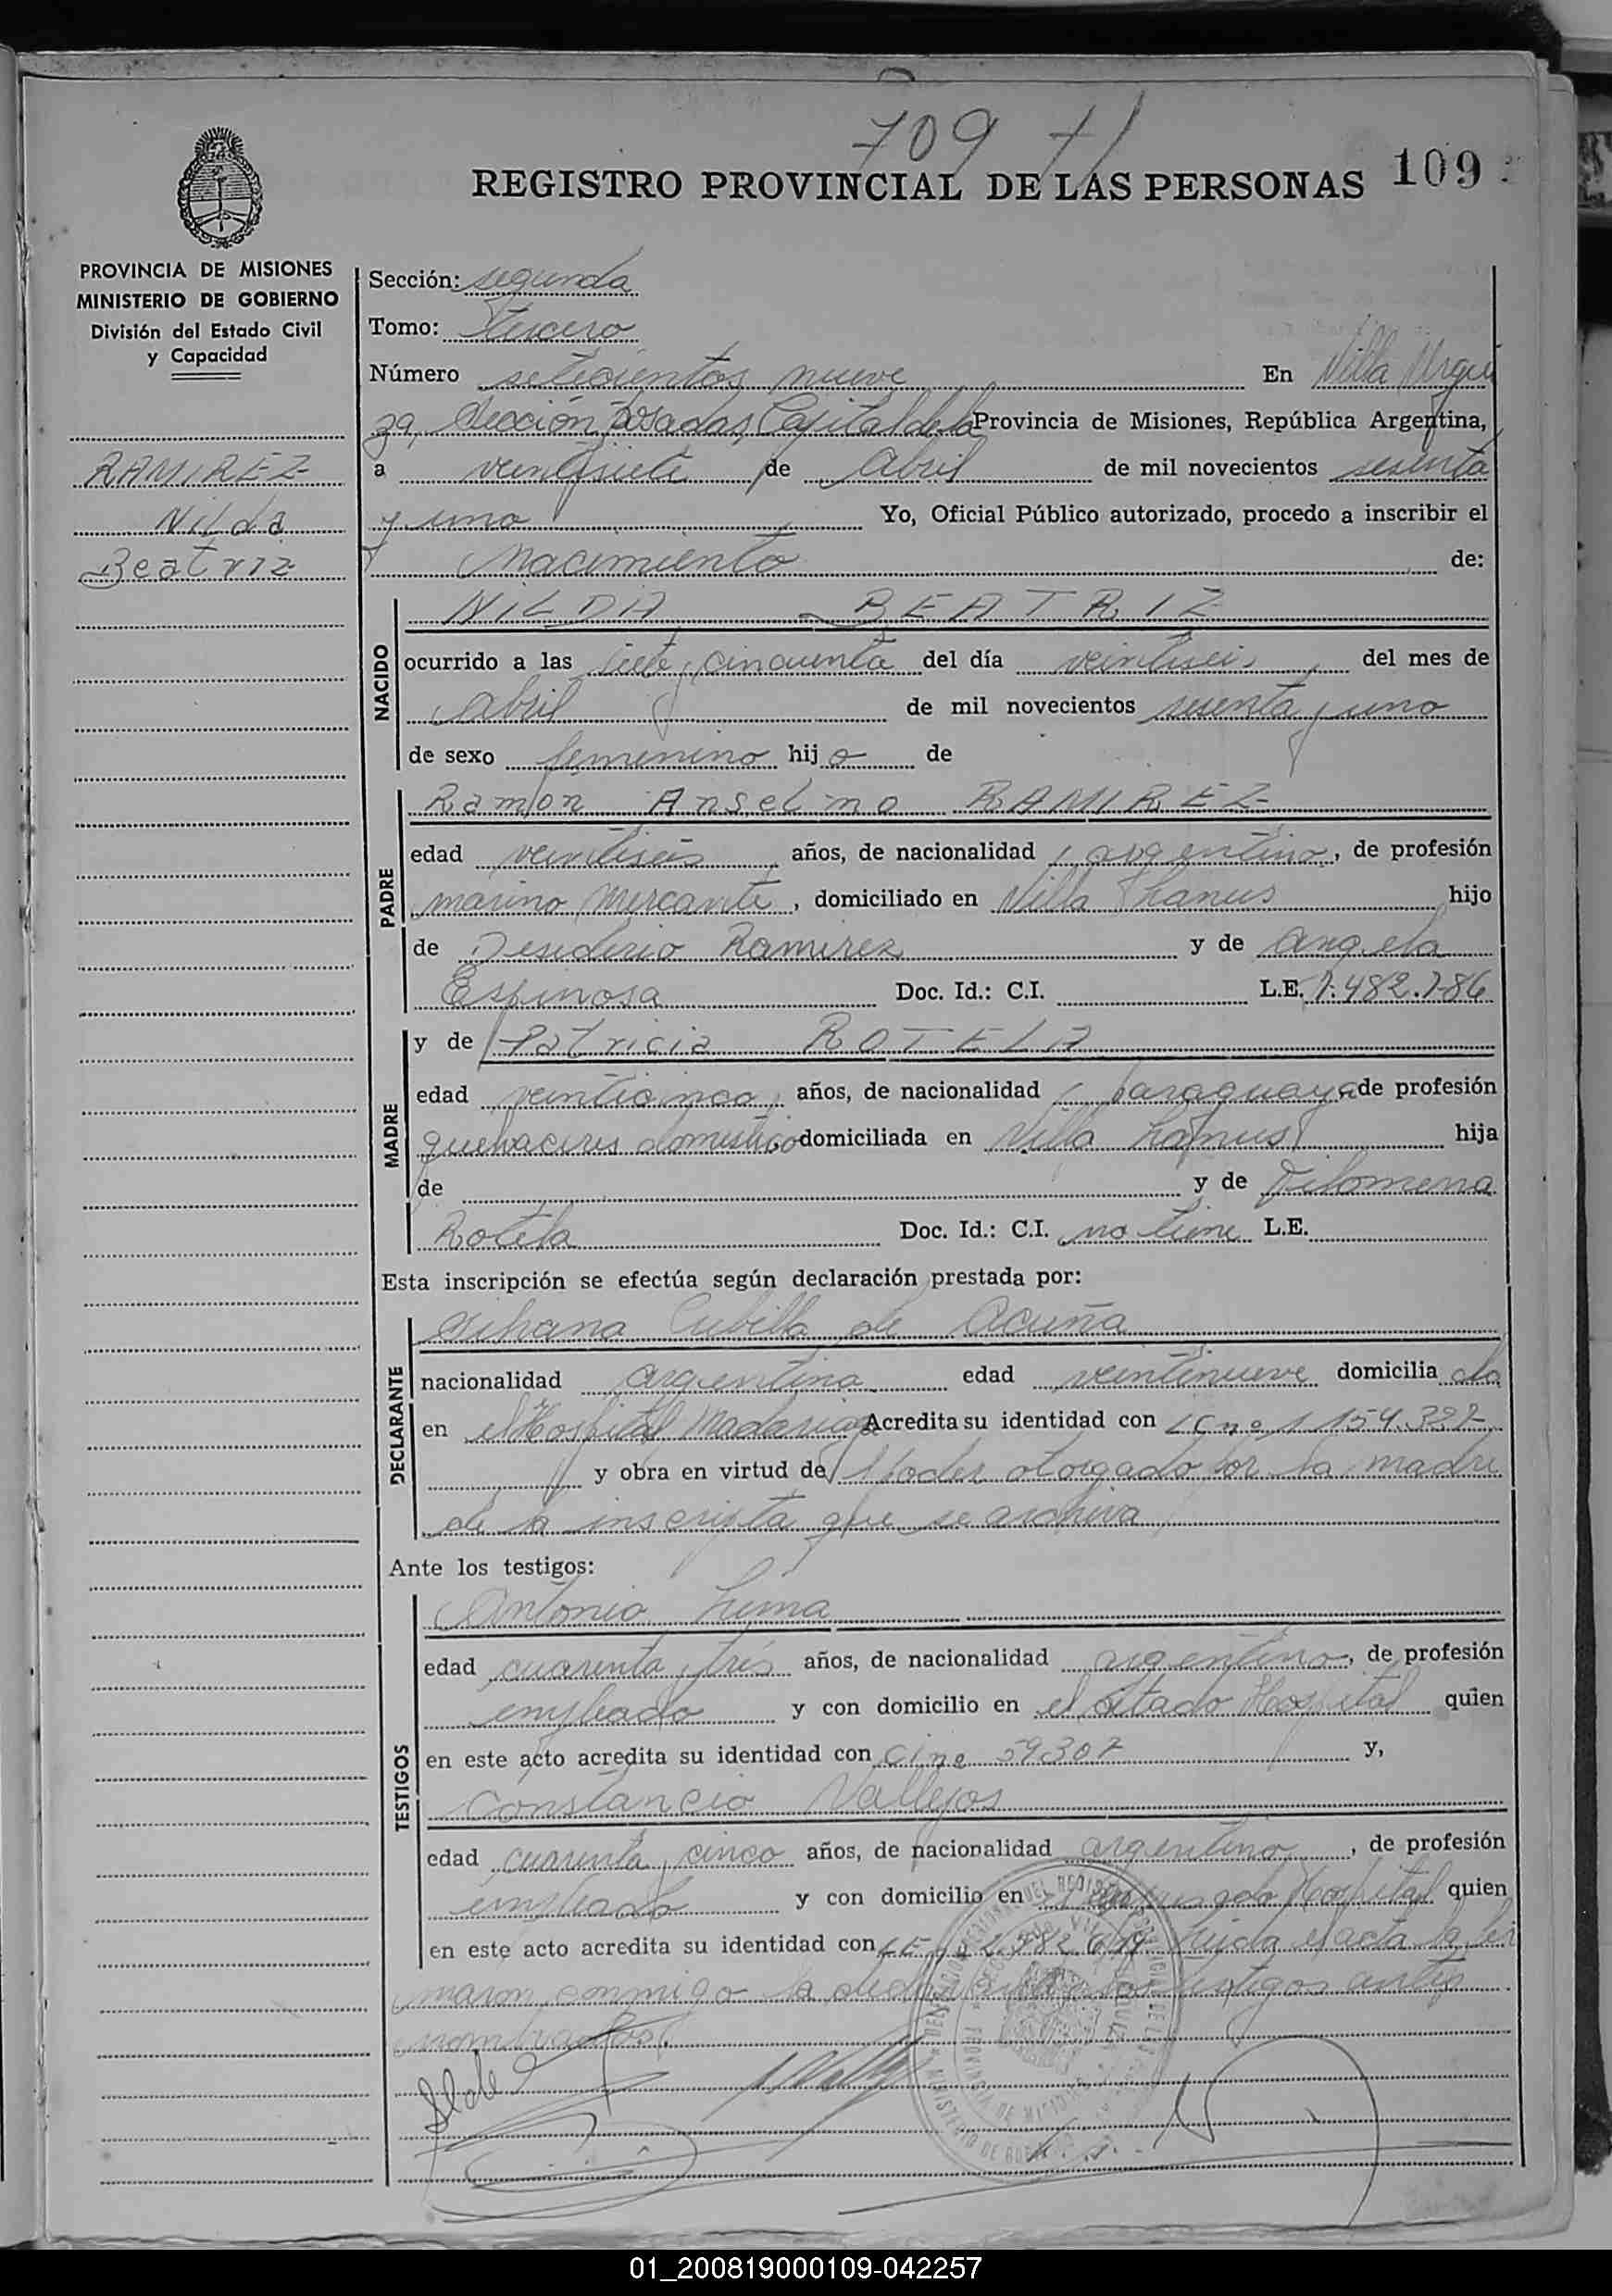 709
REGISTRO PROVINCIAL DE LAS PERSONAS 109
PROVINCIA DE MISIONES
MINISTERIO DE GOBIERNO
División del Estado Civil
y Capacidad
RAMIREZ
Nilda
Beatriz
Sección: segunda
Tomo: Tercero
Número setecientos nueve En Villa Urqui
za, Sección Posadas, Capital de la Provincia de Misiones, República Argentina,
a veintisiete de Abril de mil novecientos sesenta
y uno Yo, Oficial Público autorizado, procedo a inscribir el
Nacimiento de:
NACIDO
NILDA BEATRIZ
ocurrido a las siete y cincuenta del día veintiseis del mes de
Abril de mil novecientos sesenta y uno
de sexo femenino hija de
PADRE
Ramon Anselmo RAMIREZ
edad veintiseis años, de nacionalidad argentino, de profesión
marino mercante, domiciliado en Villa Lanus hijo
de Desiderio Ramirez y de Angela
Espinosa Doc. Id.: C.I. L.E. 7.482.786
MADRE
y de Patricia ROTELA
edad veinticinco años, de nacionalidad paraguaya de profesión
quehaceres domestico domiciliada en Villa Lanus hija
de y de Filomena
Rotela Doc. Id.: C.I. no tiene L.E.
Esta inscripción se efectúa según declaración prestada por:
DECLARANTE
Cubilla de Acuña
nacionalidad argentina edad veintinueve domicilia da
en el Hospital Madariaga Acredita su identidad con LC nº 1.154.327
y obra en virtud del Poder otorgado por la madre
de la inscripta que se archiva
Ante los testigos:
TESTIGOS
Antonio Lima
edad cuarenta y tres años, de nacionalidad argentino, de profesión
empleado y con domicilio en el citado Hospital quien
en este acto acredita su identidad con CI nº 59307 y,
Constancio Vallejos
edad cuarenta y cinco años, de nacionalidad argentino, de profesión
empleado y con domicilio en Hospital quien
en este acto acredita su identidad con LE Leida el acta la fir
maron conmigo la testigos antes
nombrados.
01_200819000109-042257